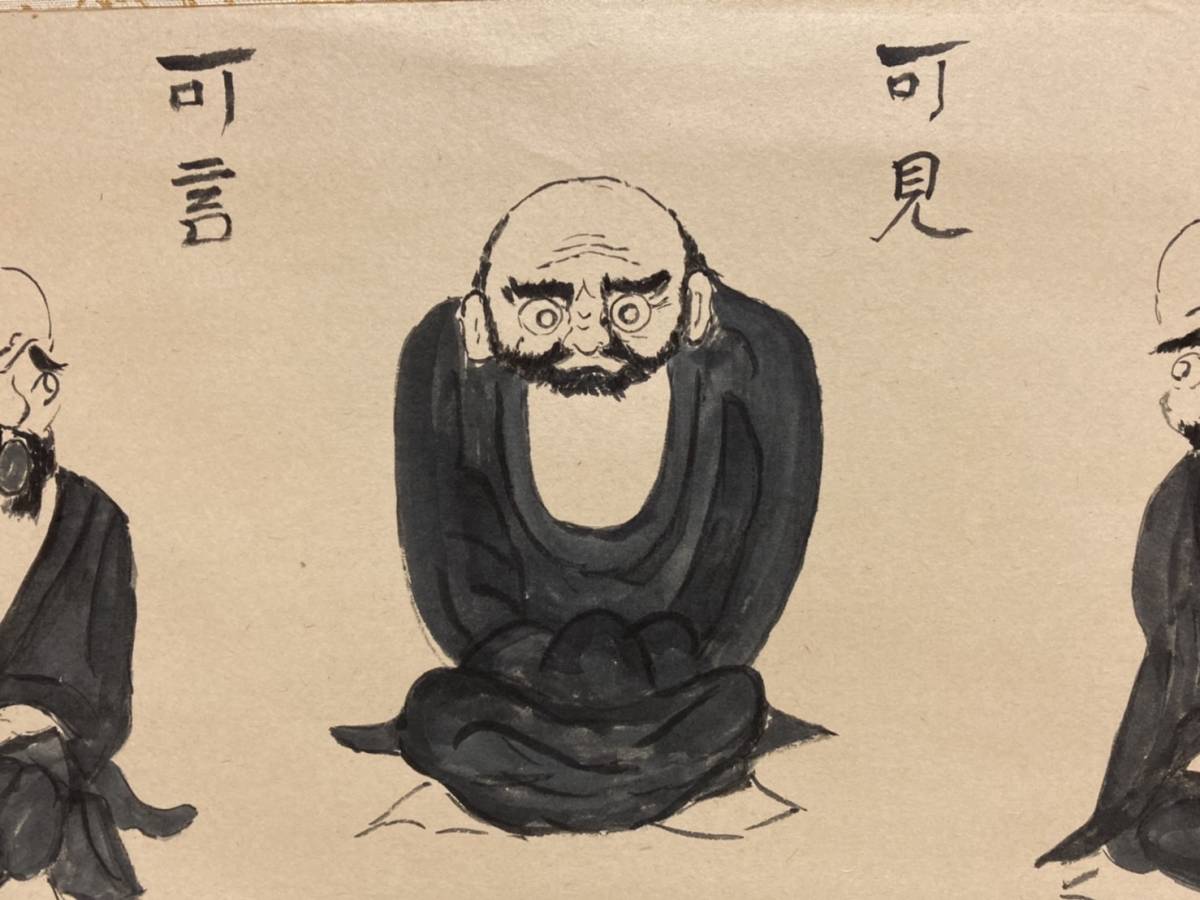 可見
可言